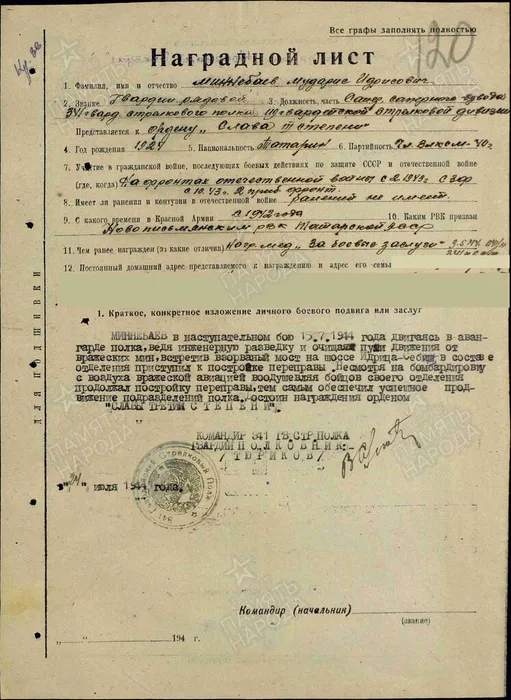 Все графы заполнять полностью
120
Наградной лист
1. Фамилия, имя и отчество Миннебаев Мударис Идрисович
2. Звание Гвардии рядовой 3. Должность, часть взвода
341 гвард. стрелкового полка гвардейской стрелковой дивизии
Представляется к ордену „Слава III степени"
4. Год рождения 1924 5. Национальность Татарин 6. Партийность Чл. ВЛКСМ-
7. Участие в гражданской войне, последующих боевых действиях по защите СССР и отечественной войне
(где, когда) На фронтах отечественной войны с 2.1943 г. СЗФ
с 10.43 г. 2 приб. фронт.
8. Имеет ли ранения и контузии в отечественной войне ранений не имеет.
9. С какого времени в Красной Армии с 1942 года 10. Каким РВК призван
Новописьмянским РВК Татарской
11. Чем ранее награжден (за какие отличия) Награ. мед „За боевые заслуги"
12. Постоянный домашний адрес представляемого к награждению и адрес его семьи
ДЛЯ ПОДШИВКИ
1. Краткое, конкретное изложение личного боевого подвига или заслуг
МИННЕБАЕВ в наступательном бою 15.7.1944 года двигаясь в аван-
гарде полка, ведя инженерную разведку и очищая пути движения от
вражеских мин, встретив взорваный мост на шоссе Идрица-Себеш в составе
отделения приступил к постройке переправы. Несмотря на бомбардировку
с воздуха вражеской авиацией воодушевляя бойцов своего отделения
продолжал постройку переправы, тем самым обеспечил успешное прод-
вижение подразделений полка. Достоин награждения орденом
"СЛАВЫ ТРЕТИЙ СТЕПЕНИ"
КОМАНДИР 341 ГВ.СТР.ПОЛКА
ГВАРДИИ ПОДПОЛКОВНИК:
/ТВРИКОВ/
"24" июля 1944 года.
Командир (начальник)
(звание)
„ " 194 г.
ПАМЯТЬ НАРОДА